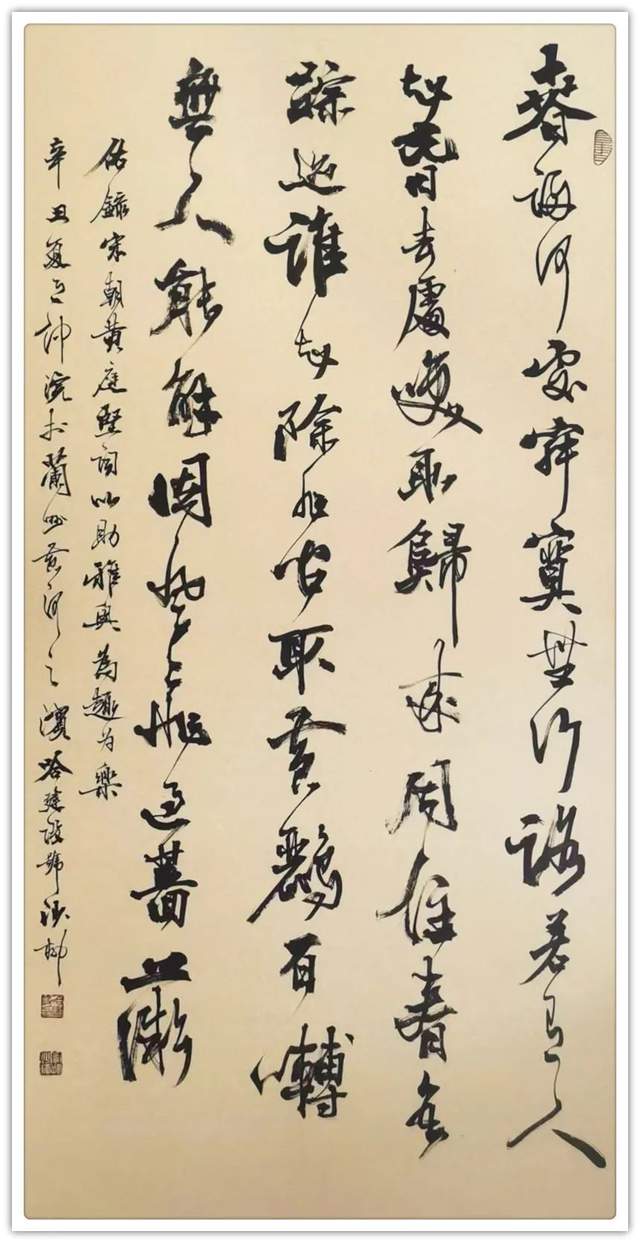 春歸何處寂寞無行路若有人
知春去處喚取歸來同住春無
踪迹誰知除非問取黄鸝百囀
無人能解因風飛過薔薇
錄宋朝黄庭堅詞以助雅興為趣为樂
辛丑夏於蘭州黄河之濱哈建設